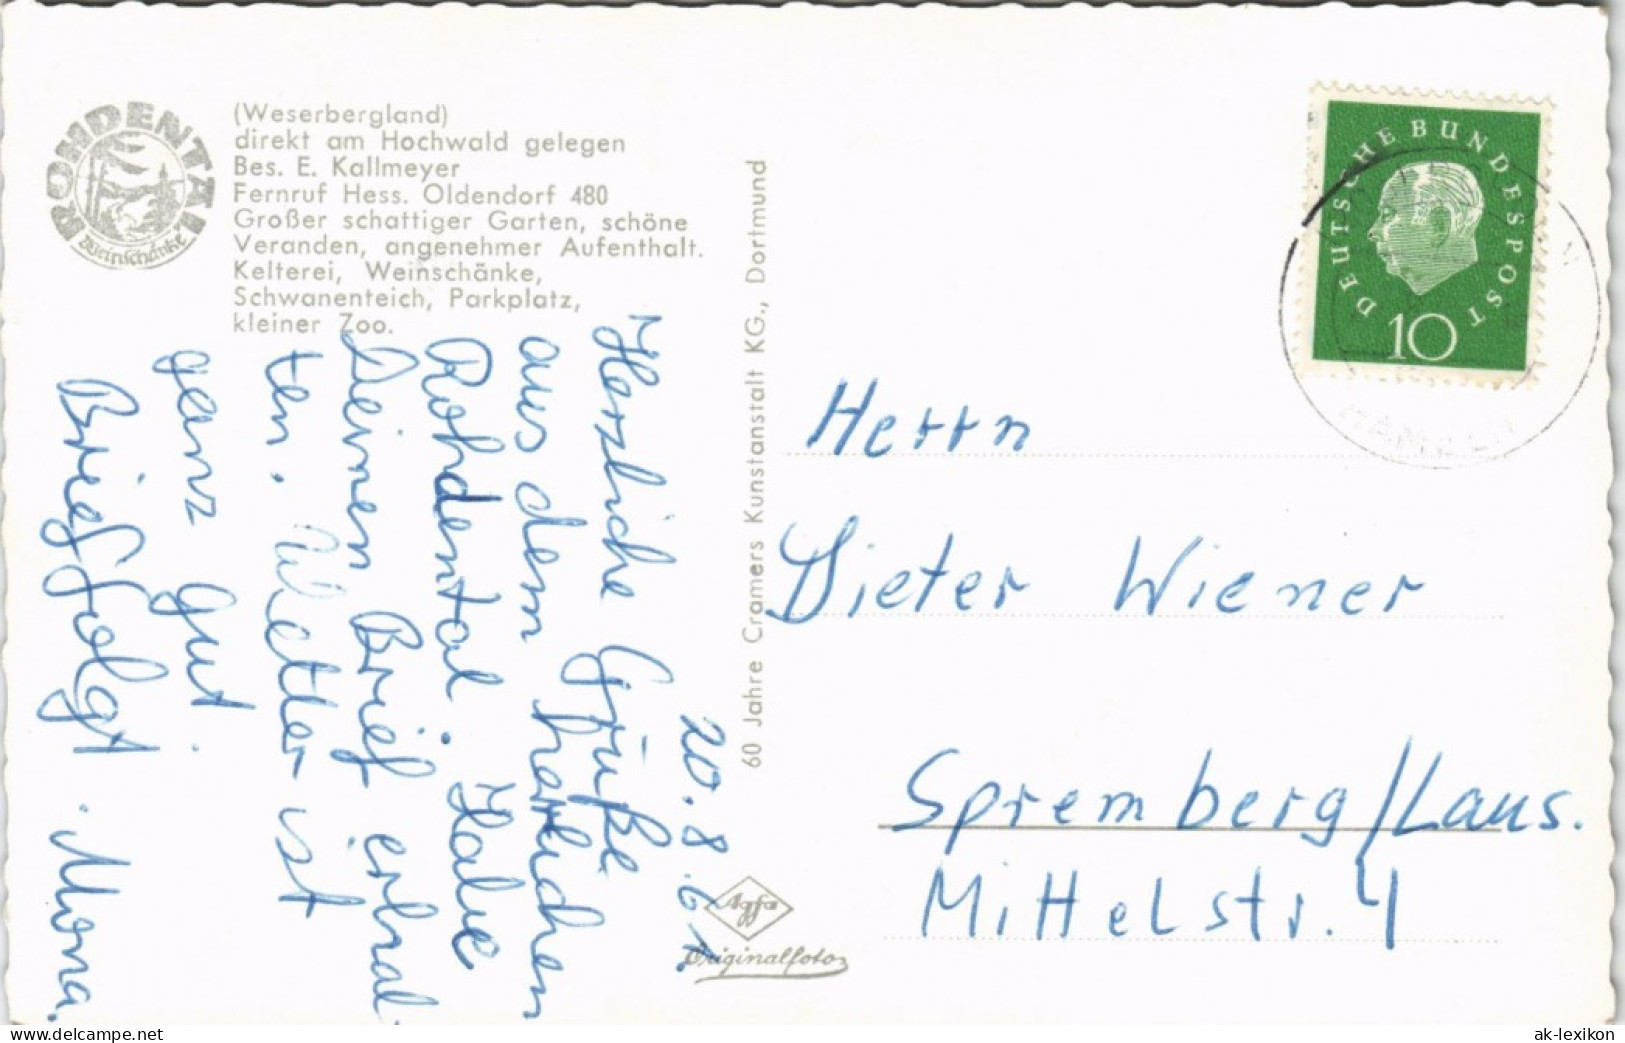 ROHDENTAL
Weinschänke
(Weserbergland)
direkt am Hochwald gelegen
Bes. E. Kallmeyer
Fernruf Hess. Oldendorf 480
Großer schattiger Garten, schöne
Veranden, angenehmer Aufenthalt.
Kelterei, Weinschänke,
Schwanenteich, Parkplatz,
kleiner Zoo.
20.8.61.
Herzliche Grüße
aus dem herrlichen
Rohdental. Habe
Deinen Brief erhal
ten. Wetter ist
ganz gut.
Brief folgt. Mona.
60 Jahre Cramers Kunstanstalt KG., Dortmund
Agfa
Originalfoto
DEUTSCHE BUNDESPOST
10
HAMELN
Herrn
Dieter Wiener
Spremberg/Laus.
Mittelstr. 4
www.delcampe.net
ak-lexikon